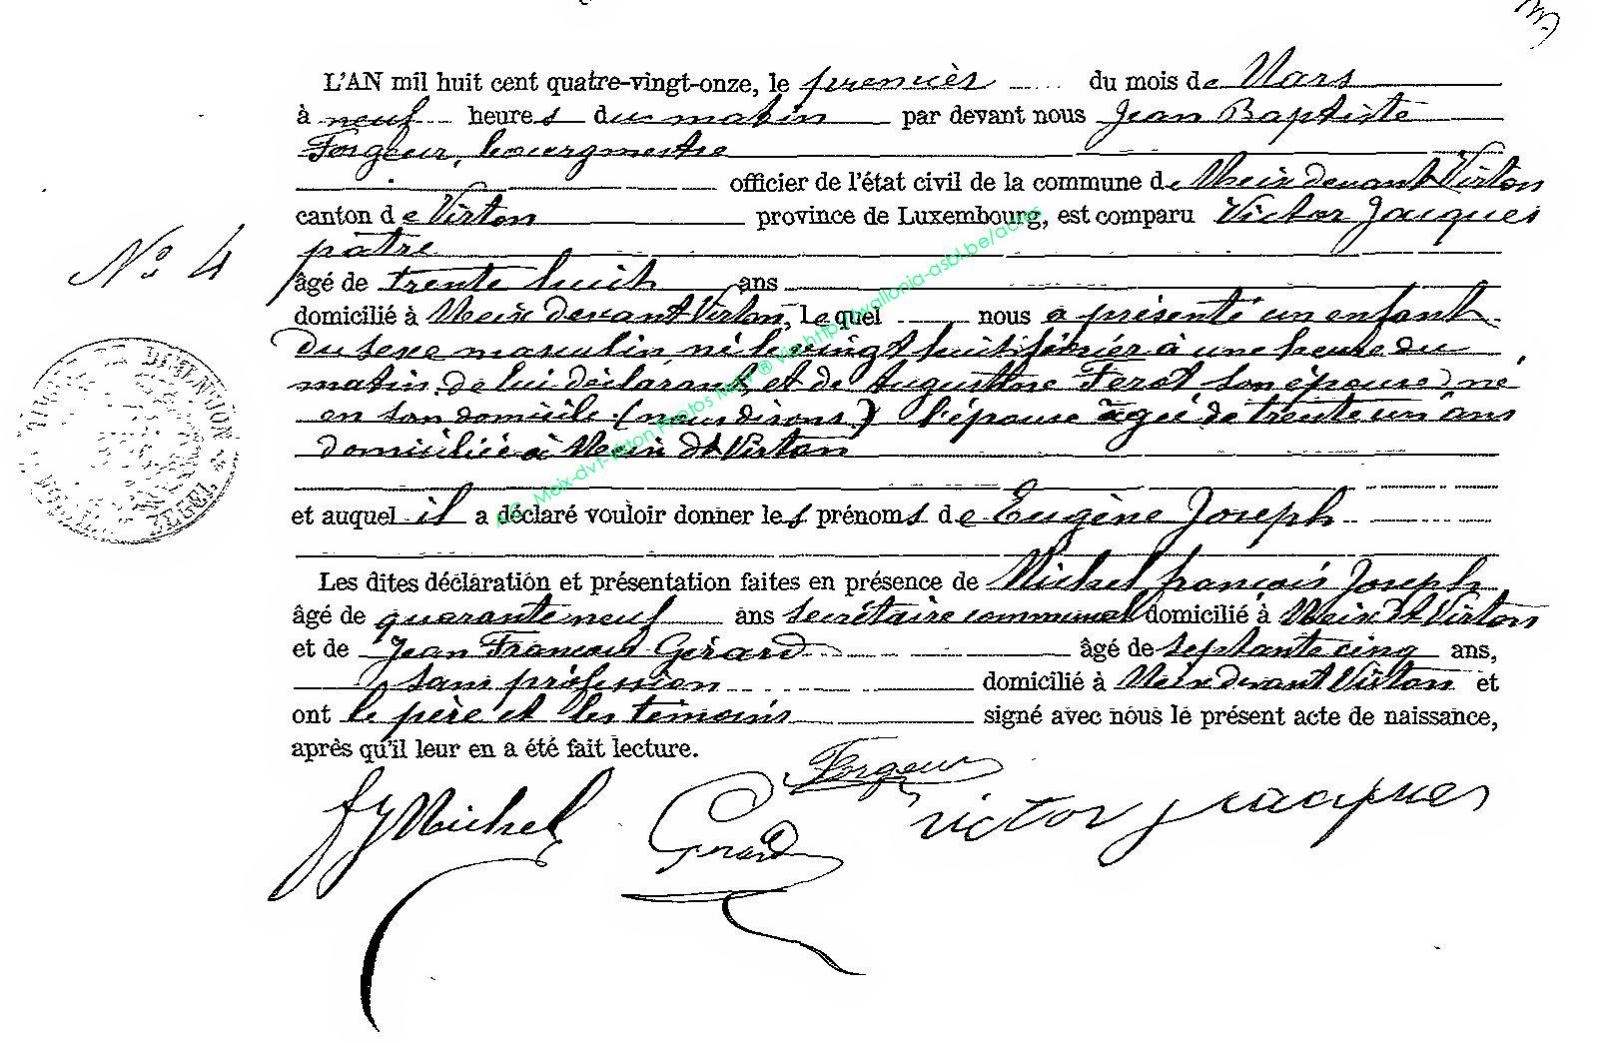 L'AN mil huit cent quatre-vingt-onze, le premièr du mois de Mars
à neuf heures du matin par devant nous Jean Baptiste
Forgeur, bourgmestre
officier de l'état civil de la commune de Meix devant Virton
canton de Virton province de Luxembourg, est comparu Victor Jacques
pâtre
N° 4
âgé de trente huit ans
domicilié à Meix devant Virton, Lequel nous a présenté un enfant
du sexe masculin né le vingt huit février à une heure du
matin de lui déclarant et de Augustine Feret son épouse né
en son domicile (nous disons) l'épouse âgée de trente un ans
domiciliée à Meix dt Virton
et auquel il a déclaré vouloir donner les prénoms de Eugène Joseph
Les dites déclaration et présentation faites en présence de Michel françois Joseph
âgé de quarante neuf ans secrétaire communal domicilié à Meix dt Virton
et de Jean François Gérard âgé de septante cinq ans,
sans profession domicilié à Meix devant Virton et
ont le père et les témoins signé avec nous le présent acte de naissance,
après qu'il leur en a été fait lecture.
Forgeur
fJ Michel Gerard victor jacques